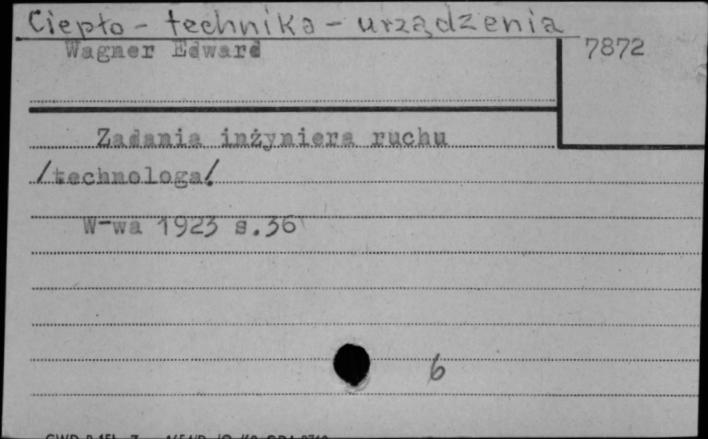 Ciepło - technika - urządzenia
Wagner Edward
7872
Zadania inżyniera ruchu
/technologa/
W-wa 1923 s.36
6